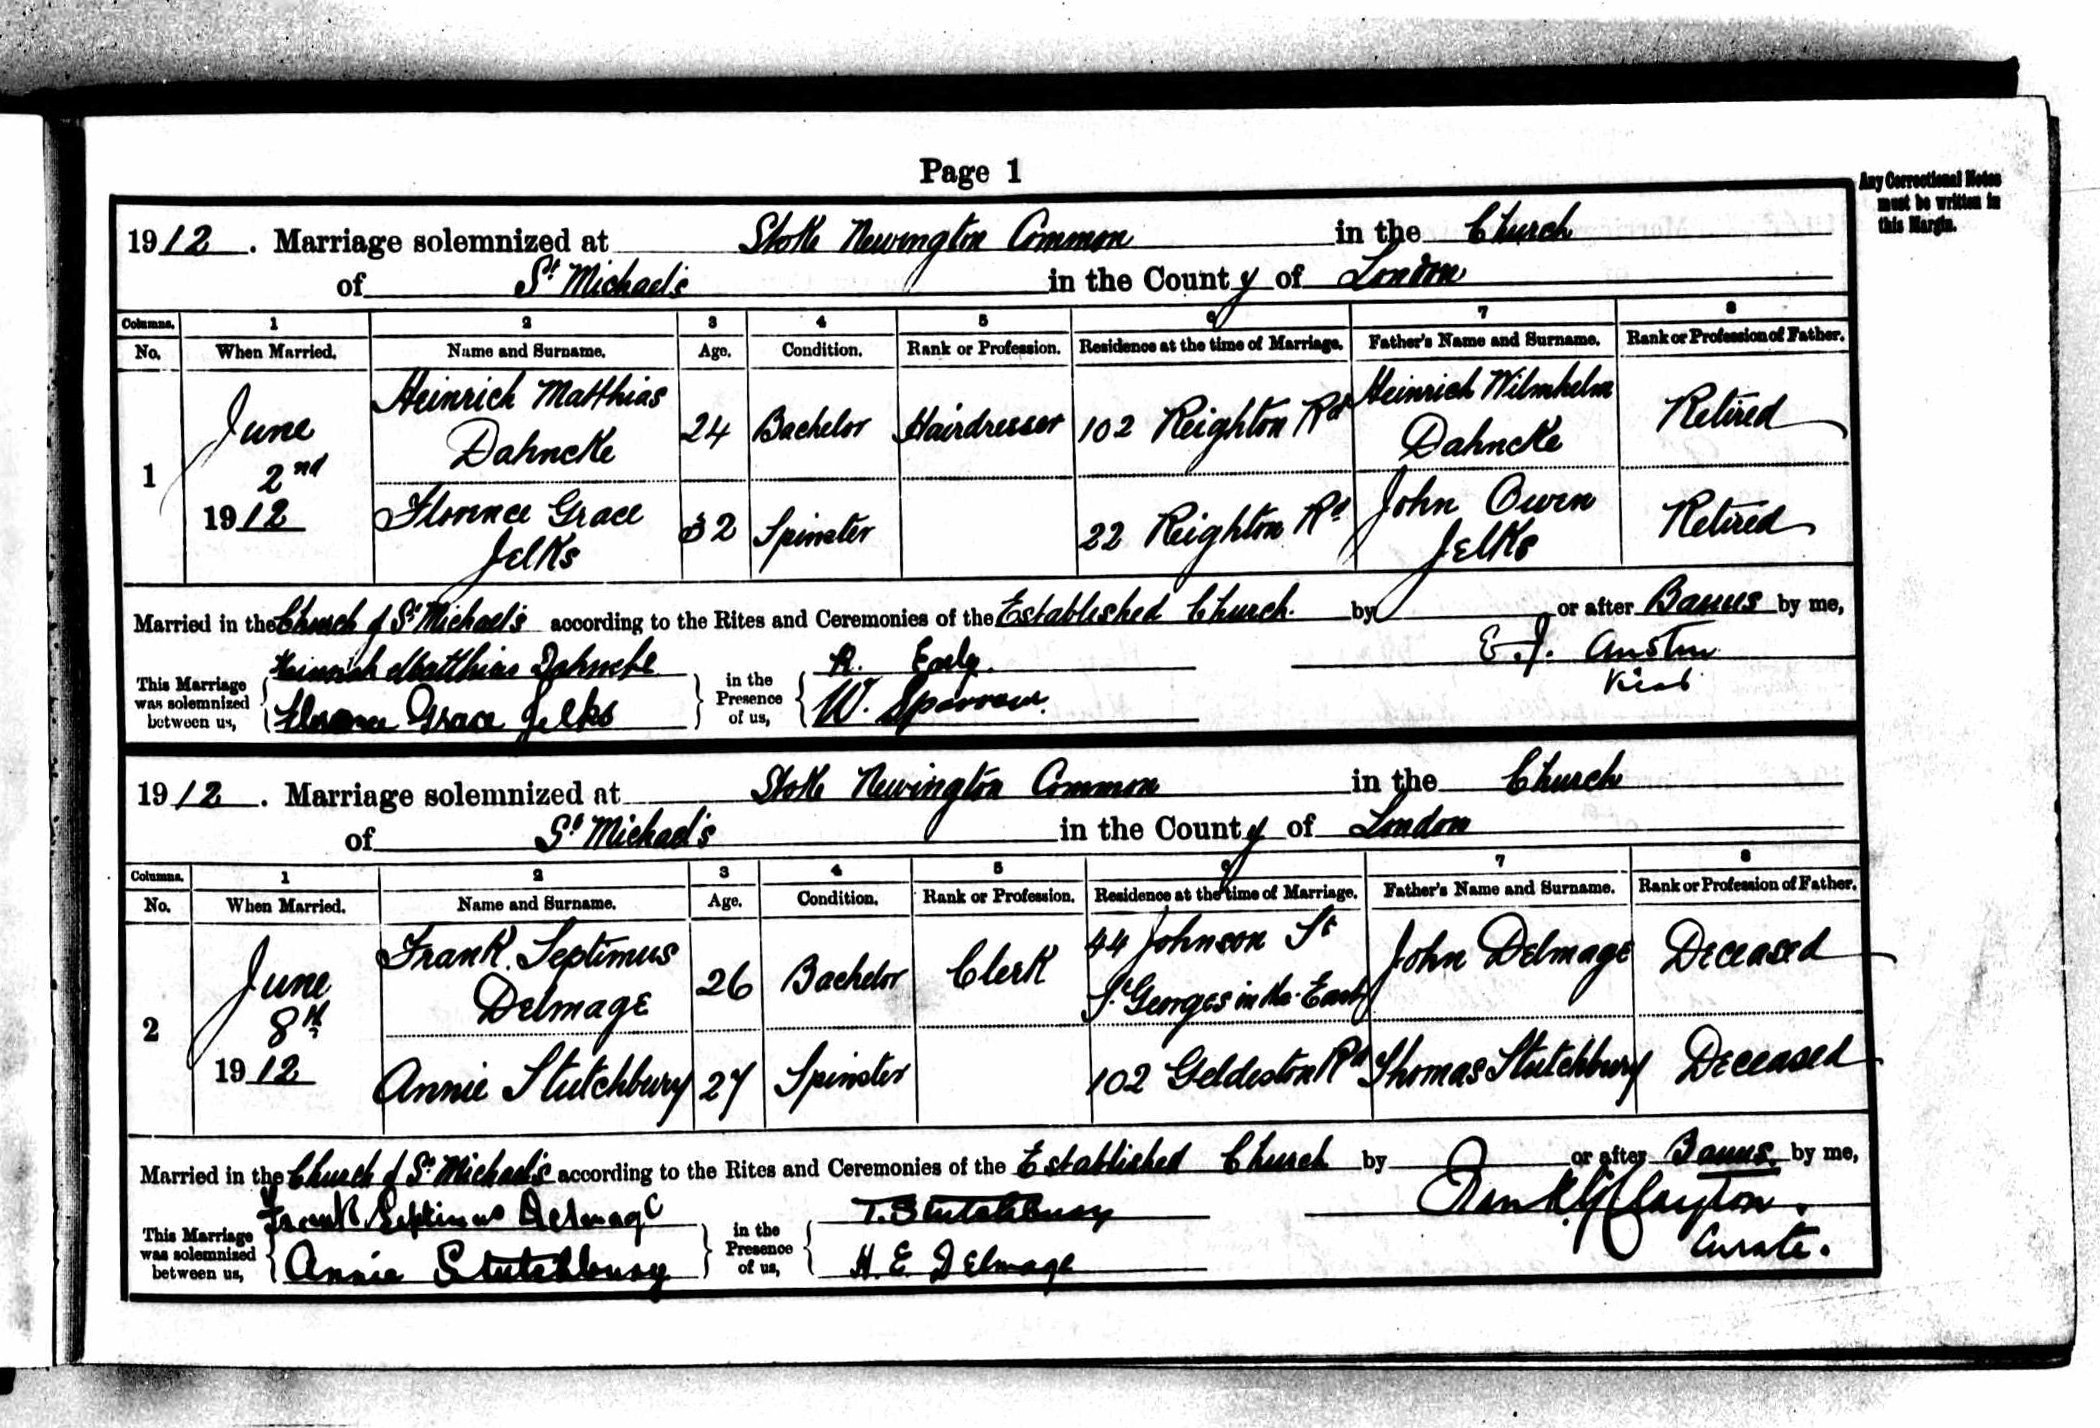 Page 1
Any Correctional Notes
must be written in
this Margin.
1912. Marriage solemnized at Stoke Newington Common in the Church
of St Michael's in the County of London
Columns. 1 2 3 4 5 6 7 8
No. When Married. Name and Surname. Age. Condition. Rank or Profession. Residence at the time of Marriage. Father's Name and Surname. Rank or Profession of Father.
1 June 2nd 1912 Heinrich Matthias Dahncke 24 Bachelor Hairdresser 102 Reighton Rd Heinrich Wilmhelm Dahncke Retired
Florence Grace Jelks 32 Spinster 22 Reighton Rd John Owen Jelks Retired
Married in the Church of St Michael's according to the Rites and Ceremonies of the Established Church. by or after Banns by me,
This Marriage was solemnized between us, Heinrich Matthias Dahncke in the Presence of us, R. Early. E. J. Austin
Florence Grace Jelks W. Sparrow.
1912. Marriage solemnized at Stoke Newington Common in the Church
of St Michael's in the County of London
Columns. 1 2 3 4 5 6 7 8
No. When Married. Name and Surname. Age. Condition. Rank or Profession. Residence at the time of Marriage. Father's Name and Surname. Rank or Profession of Father.
2 June 8th 1912 Frank Septimus Delmage 26 Bachelor Clerk 44 Johnson St St Georges in the East John Delmage Deceased
Annie Stutchbury 27 Spinster 102 Geldeston Rd Thomas Stutchbury Deceased
Married in the Church of St Michael's according to the Rites and Ceremonies of the Established Church by or after Banns. by me,
This Marriage was solemnized between us, Frank Septimus Delmage in the Presence of us, T. Stutchbury Clayton.
Annie Stutchbury H. E. Delmage Curate.